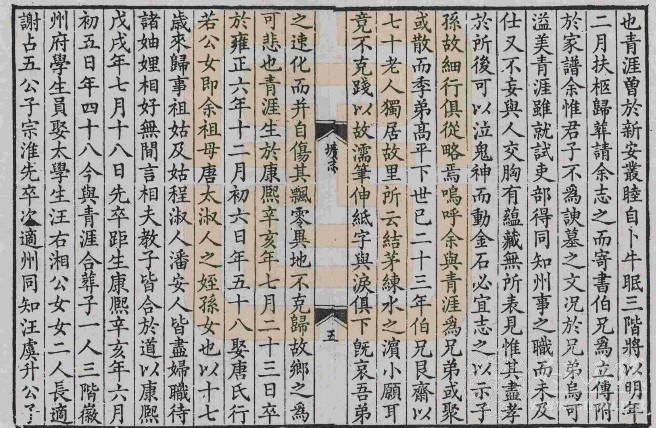 也青涯曽於新安叢睦自卜牛眠三階將以明年
二月扶柩歸葬請余志之而寄書伯兄爲立傳附
於家譜余惟君子不爲諛墓之文況於兄弟烏可
溢美青涯雖就試吏部得同知州事之職而未及
仕又不妄與人交胸有蘊藏無所表見惟其盡孝
於所後可以泣鬼神而動金石必宜志之以示子
孫故細行俱從略焉嗚呼余與青涯爲兄弟或聚
或散而季弟高平下世已二十三年伯兄艮齋以
七十老人獨居故里所云結茅練水之濵小願耳
竟不克踐以故濡筆伸紙字與淚俱下旣哀吾弟
壙志
五
之速化而并自傷其飄零異地不克歸故鄉之爲
可悲也青涯生於康熙辛亥年七月二十三日卒
於雍正六年十二月初六日年五十八娶唐氏行
若公女即余祖母唐太淑人之姪孫女也以十七
歲來歸事祖姑及姑程淑人潘安人皆盡婦職待
諸妯娌相好無閒言相夫教子皆合於道以康熙
戊戌年七月十八日先卒距生康熙辛亥年六月
初五日年四十八今與青涯合葬子一人三階徽
州府學生員娶太學生汪右湘公女女二人長適
謝占五公子宗淮先卒次適州同知汪虞升公子